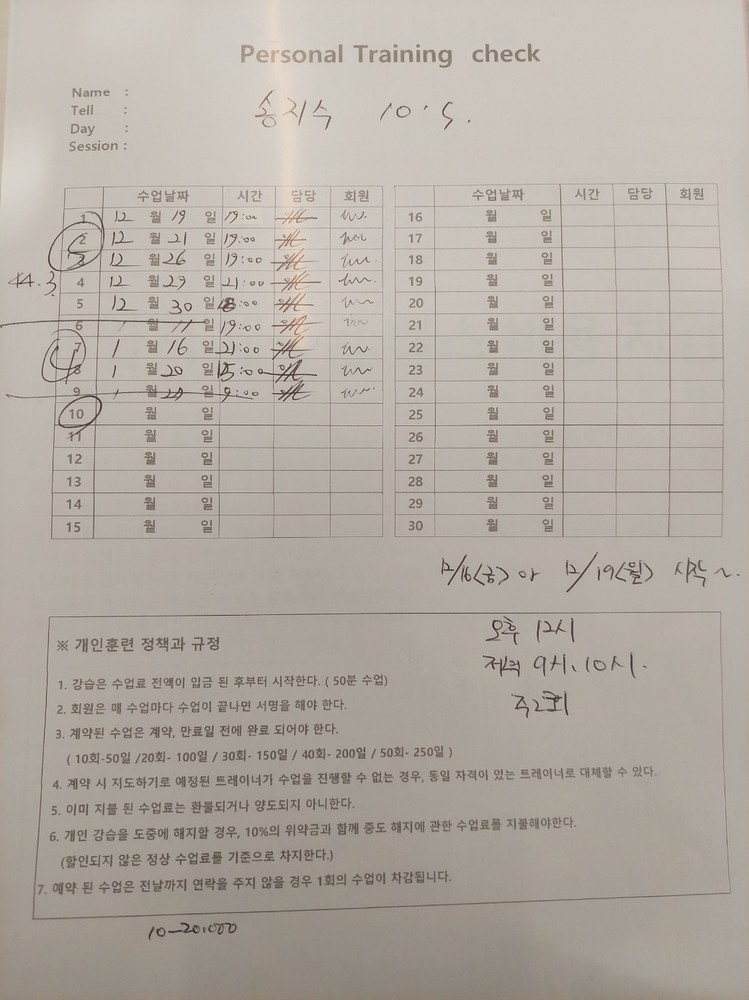 Personal Training check
Name :
Tell :
Day :
Session :
송지수 10's.
수업날짜 시간 담당 회원 수업날짜 시간 담당 회원
1 12 월 19 일 19:00 16 월 일
2 12 월 21 일 19:00 17 월 일
3 12 월 26 일 19:00 18 월 일
44.3
4 12 월 29 일 21:00 19 월 일
5 12 월 30 일 :00 20 월 일
6 1 월 11 일 19:00 21 월 일
7 1 월 16 일 21:00 22 월 일
8 1 월 20 일 15:00 23 월 일
9 1 월 일 9:00 24 월 일
10 월 일 25 월 일
11 월 일 26 월 일
12 월 일 27 월 일
13 월 일 28 월 일
14 월 일 29 월 일
15 월 일 30 월 일
12/16(금) or 12/19(월) 시작~.
오후 12시
저녁 9시, 10시.
주2회
※ 개인훈련 정책과 규정
1. 강습은 수업료 전액이 입금 된 후부터 시작한다. ( 50분 수업)
2. 회원은 매 수업마다 수업이 끝나면 서명을 해야 한다.
3. 계약된 수업은 계약, 만료일 전에 완료 되어야 한다.
( 10회-50일 /20회- 100일 / 30회- 150일 / 40회- 200일 / 50회- 250일 )
4. 계약 시 지도하기로 예정된 트레이너가 수업을 진행할 수 없는 경우, 동일 자격이 있는 트레이너로 대체할 수 있다.
5. 이미 지불 된 수업료는 환불되거나 양도되지 아니한다.
6. 개인 강습을 도중에 해지할 경우, 10%의 위약금과 함께 중도 해지에 관한 수업료를 지불해야한다.
(할인되지 않은 정상 수업료를 기준으로 차지한다.)
7. 예약 된 수업은 전날까지 연락을 주지 않을 경우 1회의 수업이 차감됩니다.
10-20.000